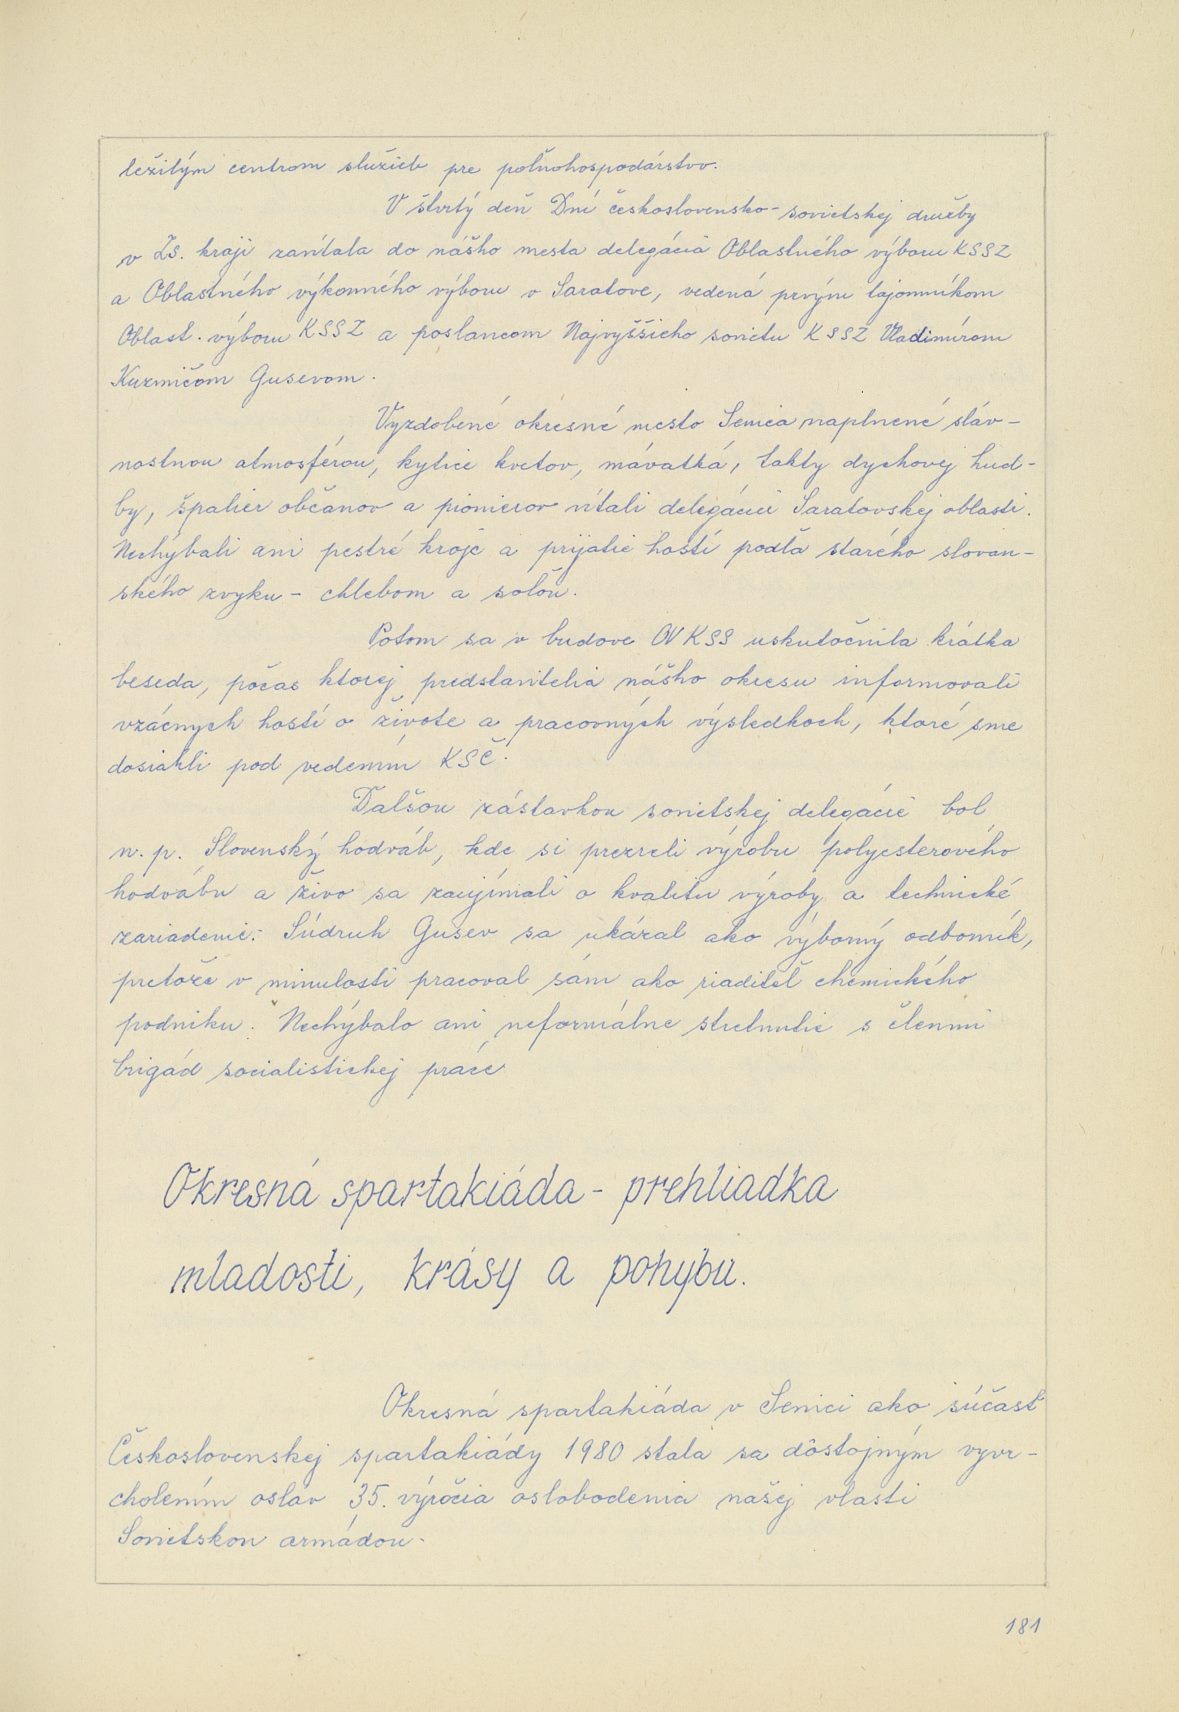 ležitým centrom služieb pre poľnohospodárstvo.
V štvrtý deň Dní československo-sovietskej družby
v Zs. kraji zavítala do nášho mesta delegácia Oblastného výboru KSSZ
a Oblastného výkonného výboru v Saratove, vedená prvým tajomníkom
Oblast. výboru KSSZ a poslancom Najvyššieho sovietu KSSZ Vladimírom
Kuzmičom Gusevom.
Vyzdobené okresné mesto Senica naplnené sláv-
nostnou atmosférou, kytice kvetov, mávatká, takty dychovej hud-
by, špalier občanov a pionierov vítali delegáciu Saratovskej oblasti.
Nechýbali ani pestré kroje a prijatie hostí podľa starého slovan-
ského zvyku - chlebom a soľou.
Potom sa v budove OV KSS uskutočnila krátka
beseda, počas ktorej predstavitelia nášho okresu informovali
vzácnych hostí o živote a pracovných výsledkoch, ktoré sme
dosiahli pod vedením KSČ.
Ďalšou zástavkou sovietskej delegácie bol
n. p. Slovenský hodváb, kde si prezreli výrobu polyesterového
hodvábu a živo sa zaujímali o kvalitu výroby a technické
zariadenie. Súdruh Gusev sa ukázal ako výborný odborník,
pretože v minulosti pracoval sám ako riaditeľ chemického
podniku. Nechýbalo ani neformálne stretnutie s členmi
brigád socialistickej práce
Okresná spartakiáda - prehliadka
mladosti, krásy a pohybu.
Okresná spartakiáda v Senici ako súčasť
Československej spartakiády 1980 stala sa dôstojným vyvr-
cholením osláv 35. výročia oslobodenia našej vlasti
Sovietskou armádou.
181